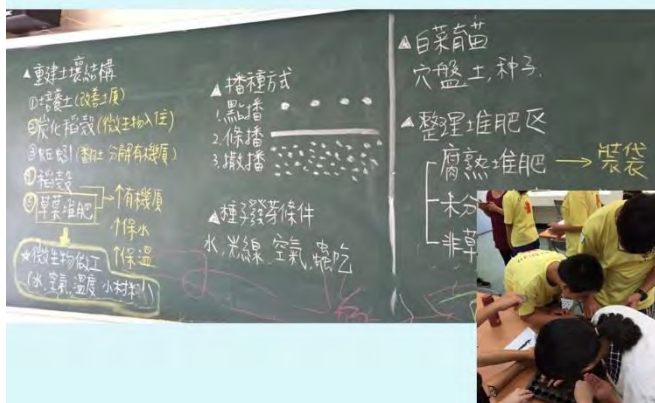 ▲重建土壤結構
①培養土(改善土质)
②炭化稻殼(微生物入住)
③蚯蚓(鬆土 分解有機质)
④稻殼
⑤草葉堆肥
↑有機质
↑保水
↑保溫
★微生物做工
(水,空氣,溫度 小材料)
▲播種方式
1.點播
2.條播
3.撒播
▲種子發芽條件
水,光線,空氣,蟲吃
▲白菜育苗
穴盤土,种子.
▲整理堆肥区
腐熟堆肥→裝袋
未分
非草